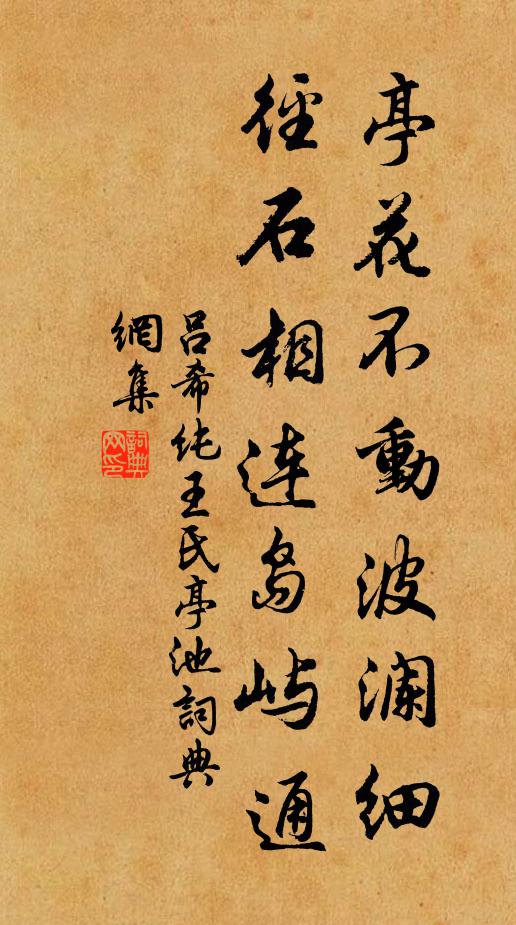 亭花不動波瀾細
徑石相連島嶼通
呂希純王氏亭池詞典
網集
詞典
网印